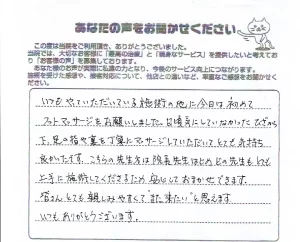 あなたの声をお聞かせください
この度は当院をご利用頂き、ありがとうございました。
当院では、大切なお客様に「最高の治療」と「親身なサービス」を提供したいと考えており「お客様の声」を募集しております。
あなた様のお声が実際に私達の力となり、今後のサービス向上につながります。
施術を受けた感想や、接客対応について、他店との違いなど、率直なご感想をお聞かせください。
いつもやっていただいている施術の他に今日は初めて
フットマッサージをお願いしました。日頃気にしていなかったひざから
下、足の指や裏を丁寧にマッサージしていただいてとても気持ち
良かったです。こちらの先生方は院長先生はじめどの先生もとても
上手に施術してくださるため安心しておまかせできます。
皆さんとても親しみやすくて"また来たい"と思えます。
いつもありがとうございます。